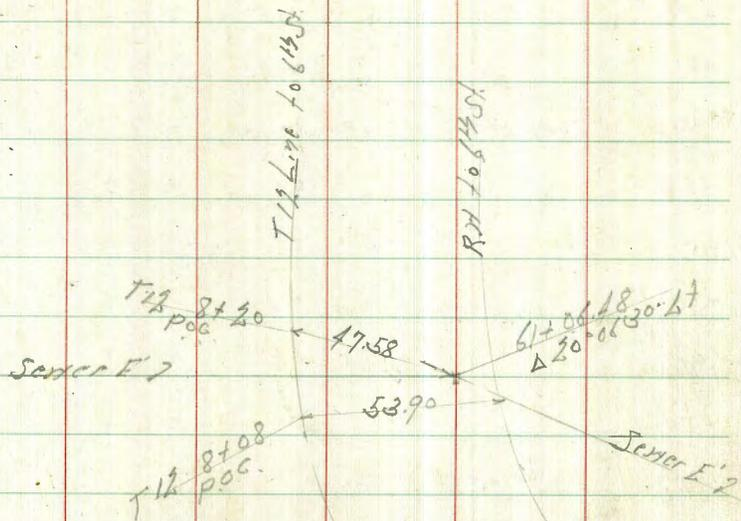 T12 Line to 6th St.
RH to 6th St.
T12 8+20
P.O.C.
47.58
61+06.48
Δ 20°06'30" Lt
Sewer E?
53.90
T12 8+08
P.O.C.
Sewer E'?